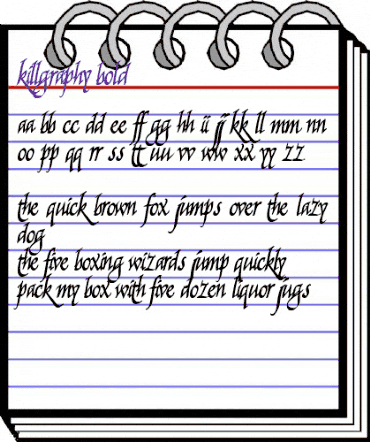 killgraphy bold
aa bb cc dd ee ff gg hh ii jj kk ll mm nn
oo pp qq rr ss tt uu vv ww xx yy zz
the quick brown fox jumps over the lazy
dog
the five boxing wizards jump quickly
pack my box with five dozen liquor jugs